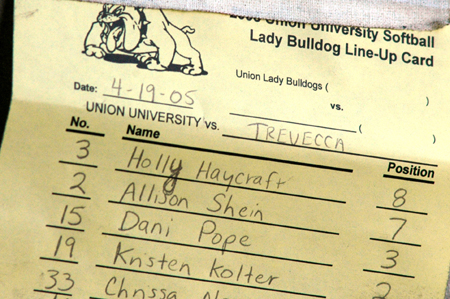 2005 Union University Softball
Lady Bulldog Line-Up Card
Union Lady Bulldogs ( )
Date: 4-19-05 vs.
UNION UNIVERSITY vs. TREVECCA ( )
No. Name Position
3 Holly Haycraft 8
2 Allison Shein 7
15 Dani Pope 3
19 Kristen Kolter 2
33 Chrissa